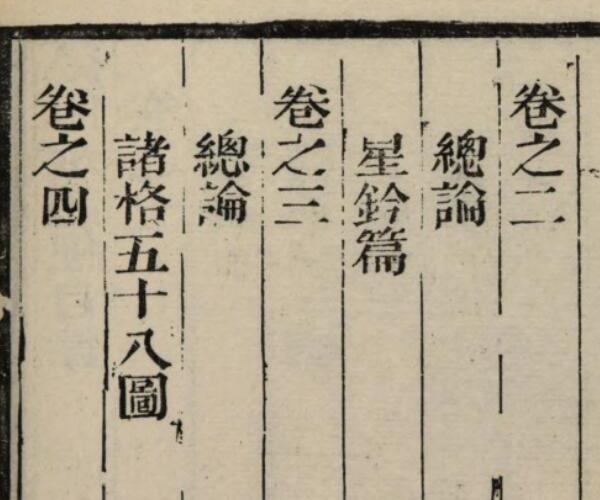 卷之二
總論
星鈐篇
卷之三
總論
諸格五十八圖
卷之四